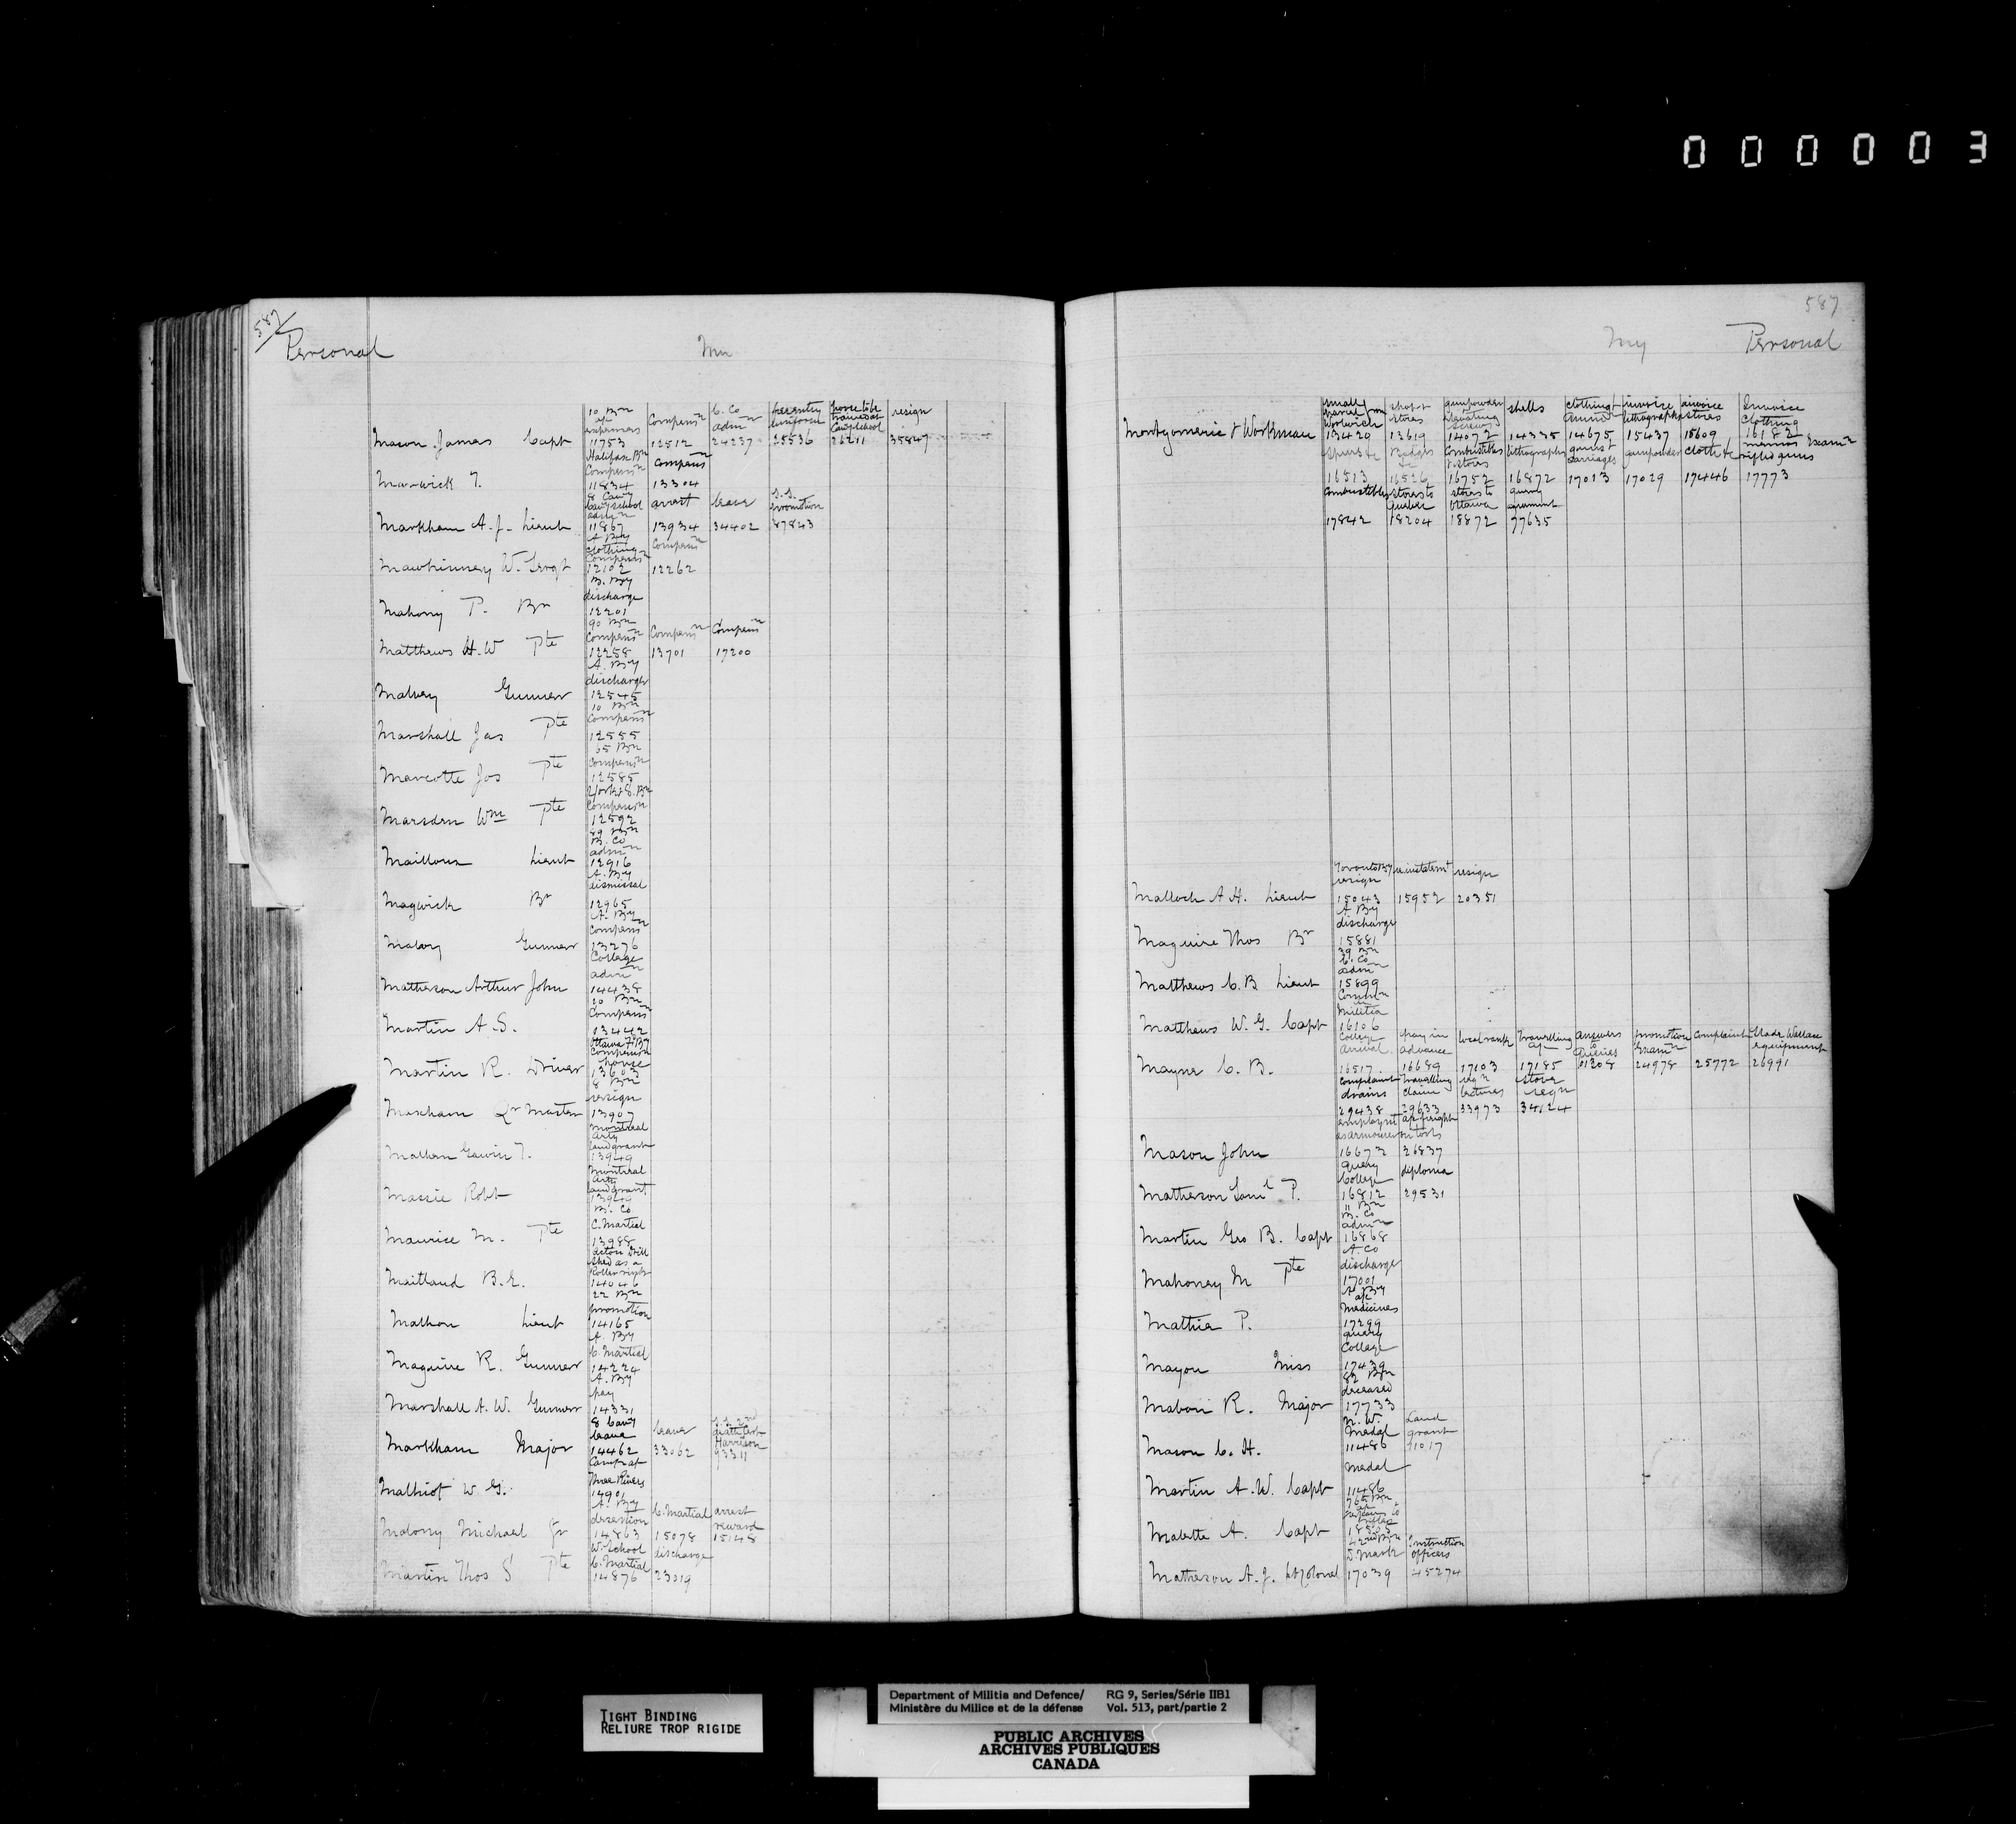 000003
587
Personal
Mu
10 Bn a/c expenses Compens^n C. Co adm^n uniform resign
Mason James Capt 11753 12512 24237 25536 26211 35847
Halifax Bn Compens^n Compens^n
Marwick T. 11834 13304
8 Cavy Cavy School adm^n arrest leave S.S. promotion
Markham A.J. Lieut 11867 13934 34402 87843
A By clothing Compens^n Compens^n
Mawhinney W. Sergt 12102 12262
B. By discharge
Mahony P. Br 12201
90 Bn Compens^n Compens^n Compens^n
Matthews H.W Pte 12258 13701 17200
A. By discharge
Malvey Gunner 12545
10 Bn Compens^n
Marshall Jas Pte 12555
65 Bn Compens^n
Marcotte Jos Pte 12585
York & S. Bn Compens^n
Marsden Wm Pte 12592
89 Bn B. Co adm^n
Mailloux Lieut 12916
A. By dismissal
Magwick Br 12965
A. By Compens^n
Malory Gunner 13276
College adm^n
Matheson Arthur John 14438
20 Bn Compens^n
Martin A.S. 13442
Ottawa F. By Compens^n horse
Martin R. Driver 13603
8 Bn resign
Marcham Qr Master 13907
Montreal Arty land grant
Malhern Gavin T. 13949
Montreal Arty land grant
Massie Robt 13949
B. Co C. Martial
Maurice M. Pte 13988
Acton Drill Shed as a Roller rink
Maitland B.E. 14046
22 Bn promotion
Malhon Lieut 14165
A. By C. Martial
Maguire R. Gunner 14224
A. By pay
Marshall A.W. Gunner 14331
8 Cavy leave leave S.S. 2nd Harrison
Markham Major 14462 33062 93311
Camp at Three Rivers
Malhiot W.G. 14901
A. By desertion C. Martial arrest reward
Malony Michael Gr 14863 15078 15148
W. School C. Martial discharge
Martin Thos S Pte 14876 23019
587
My
Personal
small parcel from Woolwich shot & stores gunpowder screws shells clothing ammn invoice lithographs invoice stores Invoice clothing
Montgomerie & Workman 13420 13619 14072 14335 14675 15437 15609 16182
Badges &c combustibles & stores lithographs guns & carriages gunpowder cloth &c rifled guns
16513 16526 16752 16872 17013 17029 17446 17773
combustibles stores to Quebec stores to Ottawa query
17842 18204 18872 77635
Toronto By resign reinstatem^t resign
Malloch A.H. Lieut 15043 15952 20351
A By discharge
Maguire Thos Br 15881
39 Bn C. Co adm^n
Matthews C.B Lieut 15899
Comm^n in Militia
Matthews W.G. Capt 16106
College arrival pay in advance local rank travelling a/c answers to queries promotion Exam^n complaint Made Wallace equipment
Mayne C.B. 16517 16689 17103 17185 01208 24978 25772 26991
complaint drains travelling claim req^n lectures stove req^n
29438 29633 33973 34124
employm^t as armourer a/c freight on tools
Mason John 16673 26837
query College diploma
Matheson Saml P. 16812 29531
11 Bn B. Co adm^n
Martin Geo B. Capt 16868
A. Co discharge
Mahoney M Pte 17001
A By a/c medicines
Mathie P. 17299
query College
Mayou Miss 17439
82 Bn deceased
Mabon R. Major 17733
N.W. Medal Land grant
Mason C.H. 11486 11017
Medal
Martin A.W. Capt 11486
76 Bn a/c repairs to rifles
Malette A. Capt
42nd Bn D. Mark Instruction officers
Matheson A.J. Lt Colonel 17039 45274
TIGHT BINDING
RELIURE TROP RIGIDE
Department of Militia and Defence/ RG 9, Series/Série IIB1
Ministère du Milice et de la défense Vol. 513, part/partie 2
PUBLIC ARCHIVES
ARCHIVES PUBLIQUES
CANADA